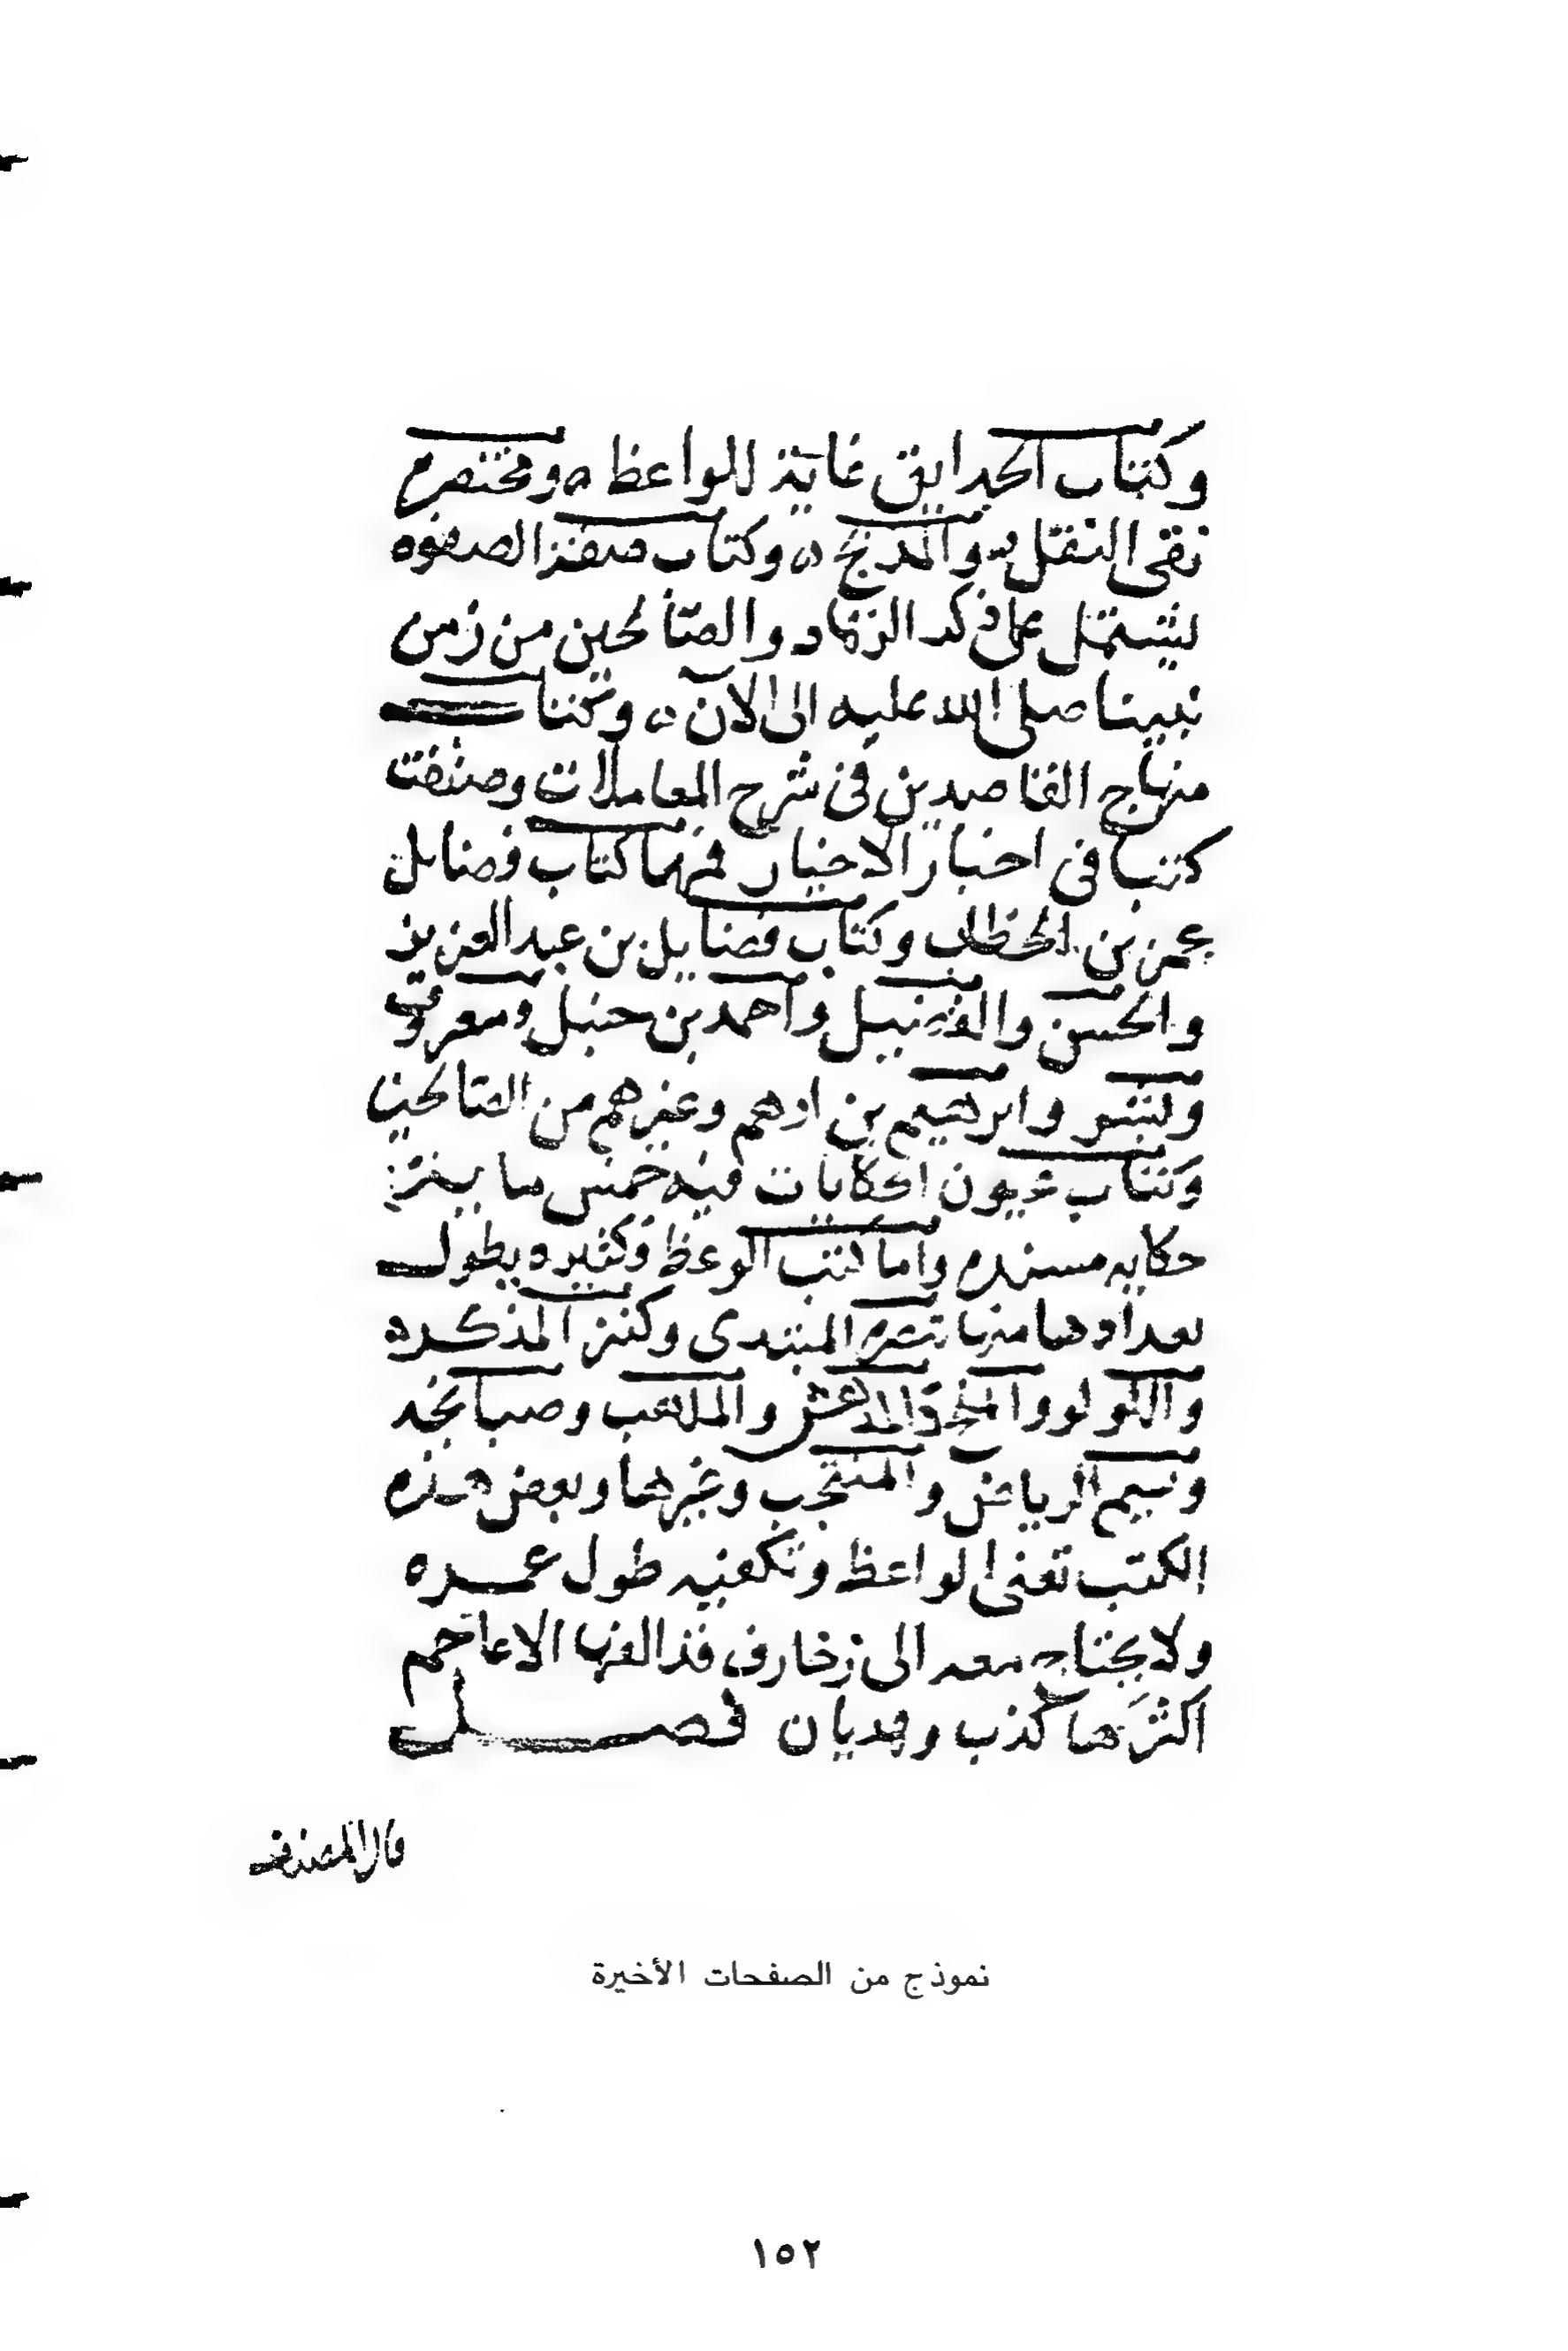 وكتاب الحدايق غاية للواعظ ه ومختصره
نقى النقل والمدبج ه وكتاب صفة الصفوه
يشتمل على ذكر الزهاد والصالحين من زمن
نبينا صلى الله عليه الى الآن ه وكتاب
منهاج القاصدين فى شرح المعاملات وصنفت
كتبا فى اخبار الاخيار فمنها كتاب فضايل
عمر بن الخطاب وكتاب فضايل بن عبد العزيز
والحسن والفضيل واحمد بن حنبل ومعروف
وبشر وابرهيم بن ادهم وغيرهم من الصالحين
وكتاب عيون الحكايات فيه خمس ماية
حكايه مسنده واما كتب الوعظ فكثيره يطول
تعدادها منها المبتدى وكنز المذكره
واللولو والمدهش والملهب وصبا نجد
ونسيم الرياض والمنتخب وغيرها وبعض هذه
الكتب تغنى الواعظ وتكفيه طول عمره
ولا يحتاج معه الى زخارف قد الفها الاعاجم
اكثرها كذب وهذيان فصل
قال المصنف
نموذج من الصفحات الأخيرة
١٥٢